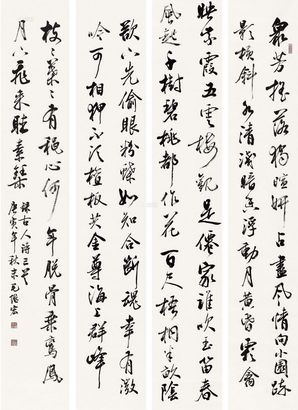 眾芳搖落獨暄妍占盡風情向小園疏
影橫斜水清淺暗香浮動月黃昏霜禽
映余霞五雲樓觀是僊家誰吹玉笛春
風起千樹碧桃都作花百尺梧桐半畝陰
欲下先偷眼粉蝶如知合斷魂幸有微
吟可相狎不須檀板共金尊海上群峰
枝枝葉葉有秋心何年脫骨乘鸾鳳
月下飛來聽素琴
錄古人詩三首
庚寅年秋末